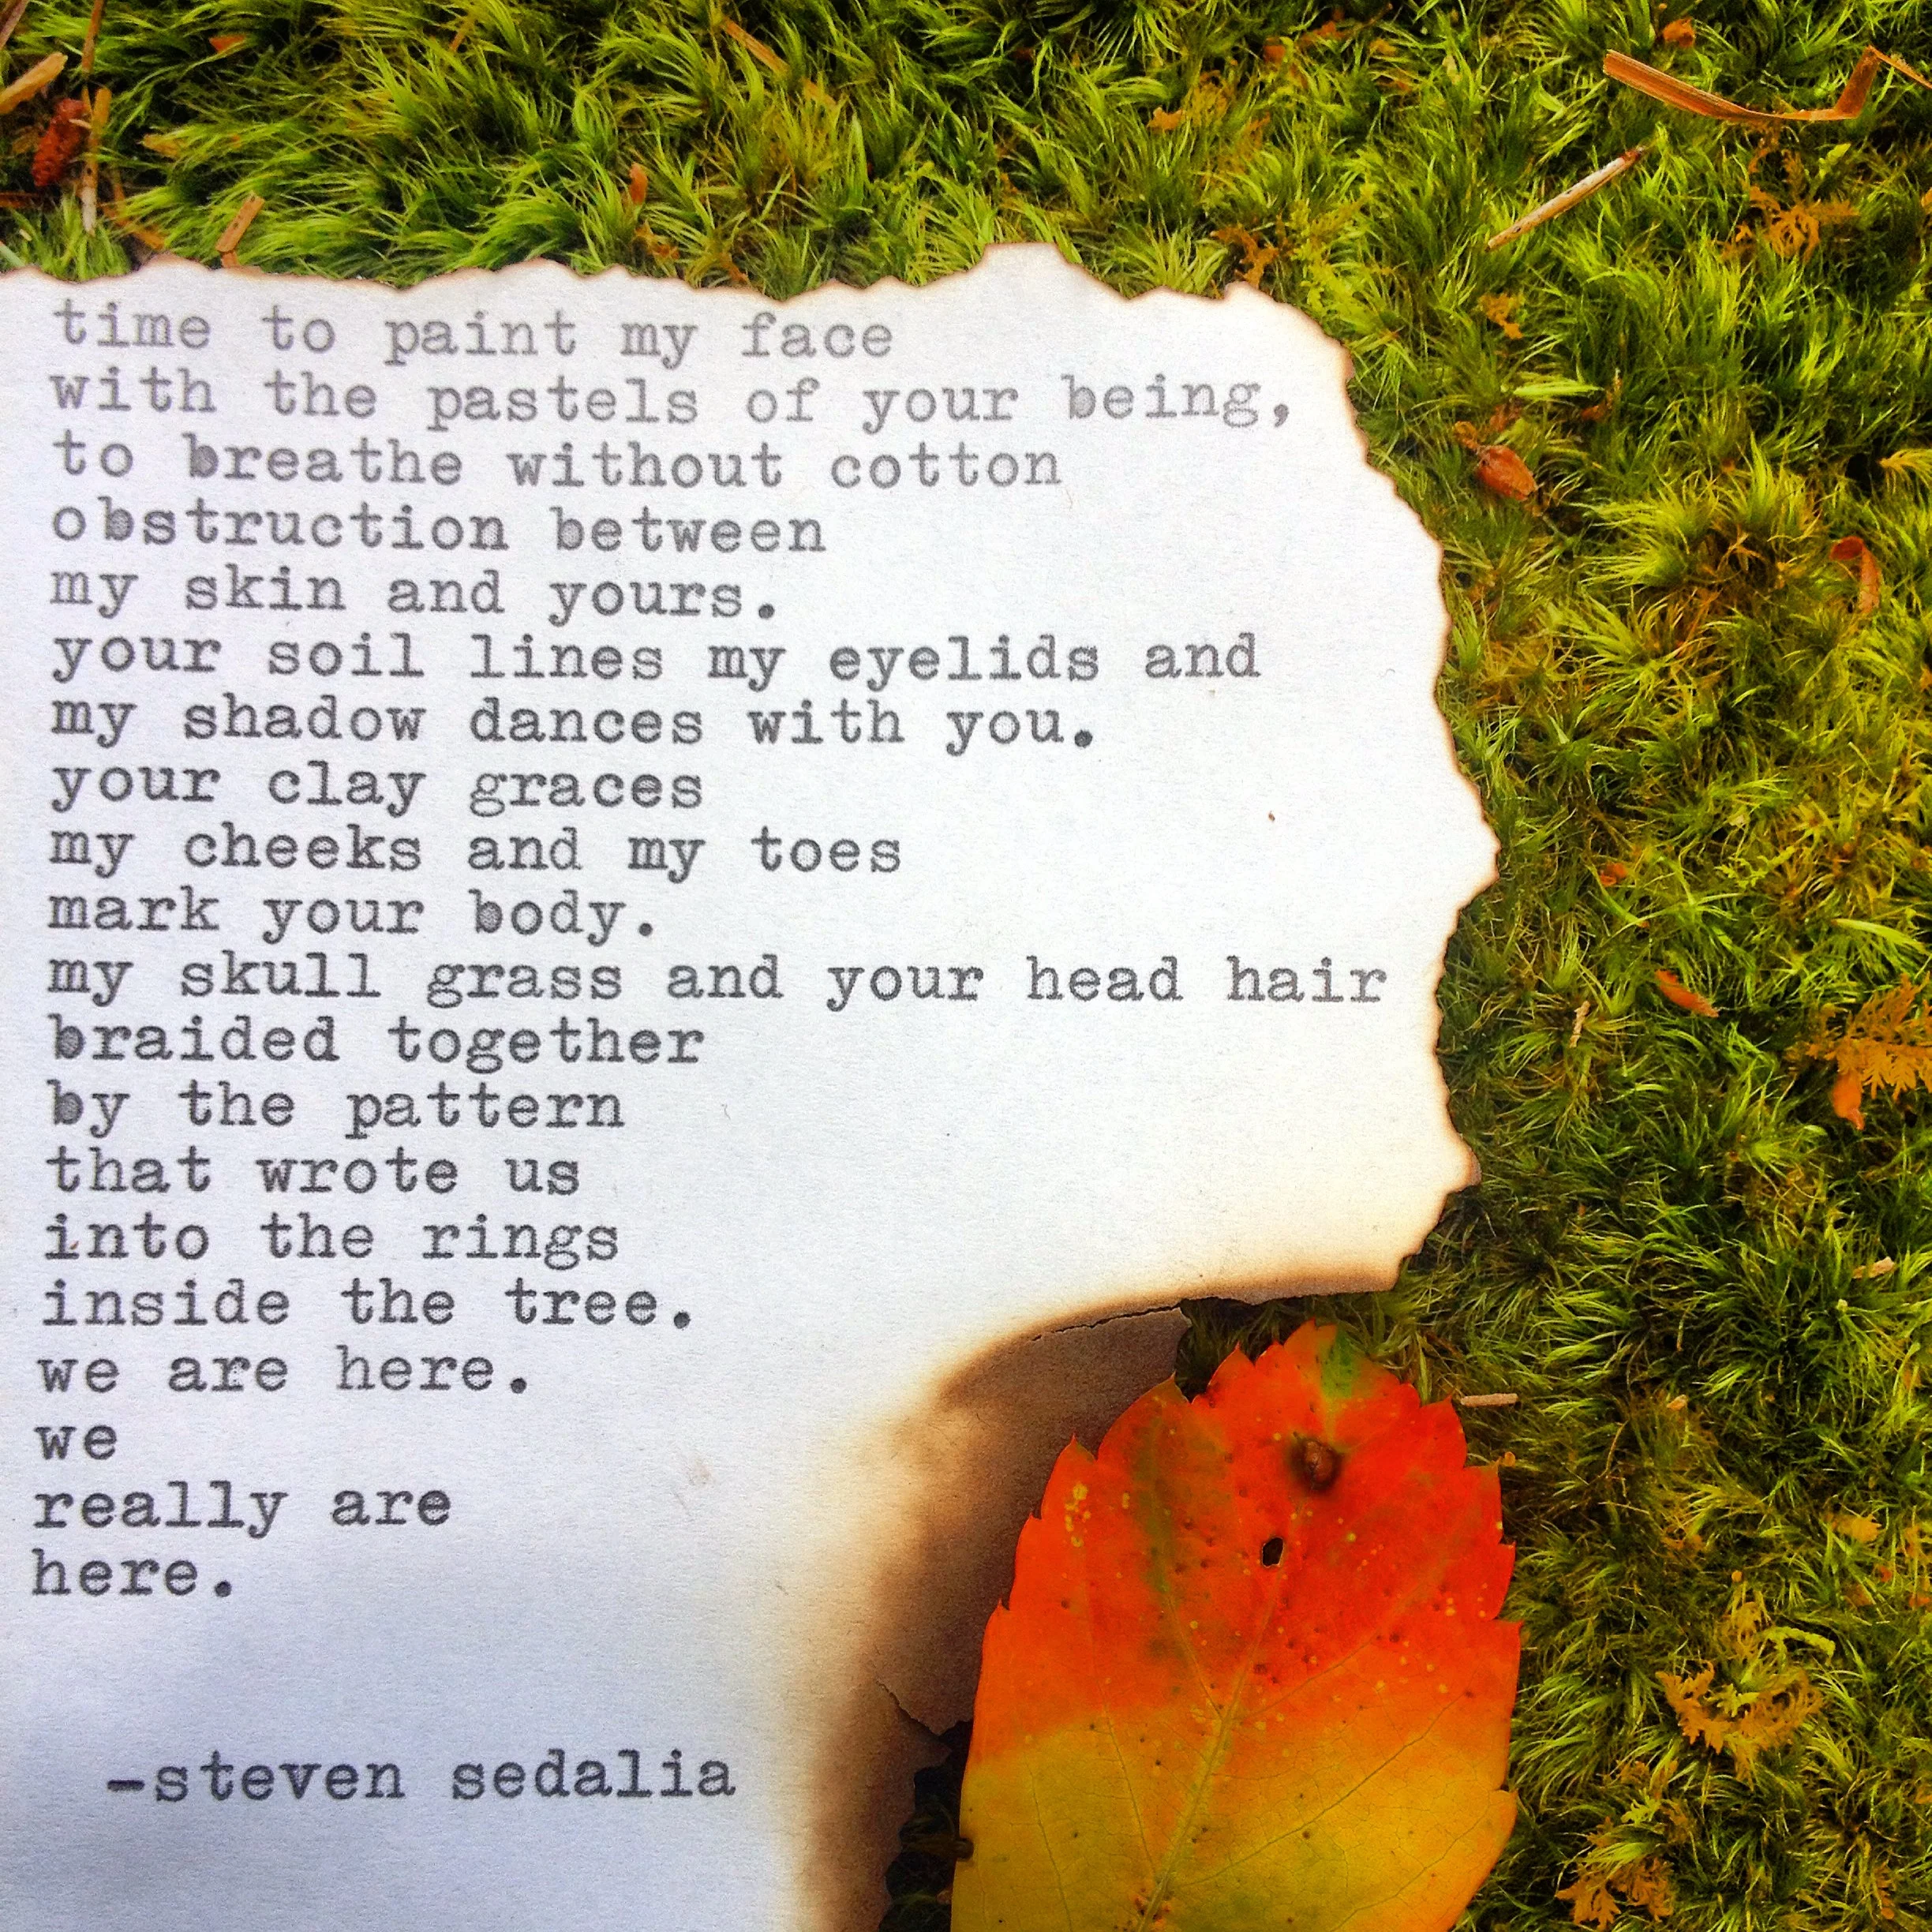 time to paint my face
with the pastels of your being,
to breathe without cotton
obstruction between
my skin and yours.
your soil lines my eyelids and
my shadow dances with you.
your clay graces
my cheeks and my toes
mark your body.
my skull grass and your head hair
braided together
by the pattern
that wrote us
into the rings
inside the tree.
we are here.
we
really are
here.
-steven sedalia